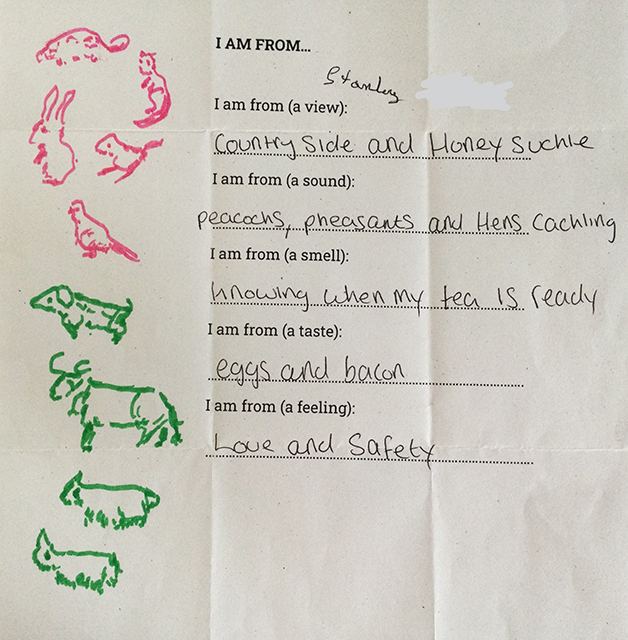 I AM FROM...
I am from (a view):
Country Side and Honey Suckle
I am from (a sound):
peacocks, pheasants and Hens Cackling
I am from (a smell):
Knowing when my tea is ready
I am from (a taste):
eggs and bacon
I am from (a feeling):
Love and Safety